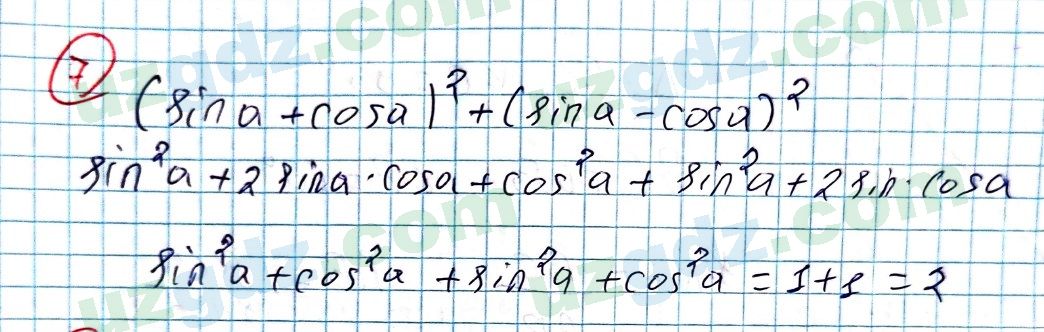 7
(sin a + cos a)² + (sin a - cos a)²
sin²a + 2 sin a · cos a + cos²a + sin²a + 2 sin · cos a
sin²a + cos²a + sin²a + cos²a = 1 + 1 = 2
uzgdz.com